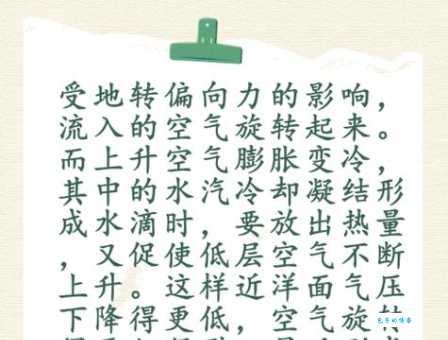 受地转偏向力的影响，
流入的空气旋转起来。
而上升空气膨胀变冷，
其中的水汽冷却凝结形
成水滴时，要放出热量
，又促使低层空气不断
上升。这样近洋面气压
下降得更低，空气旋转